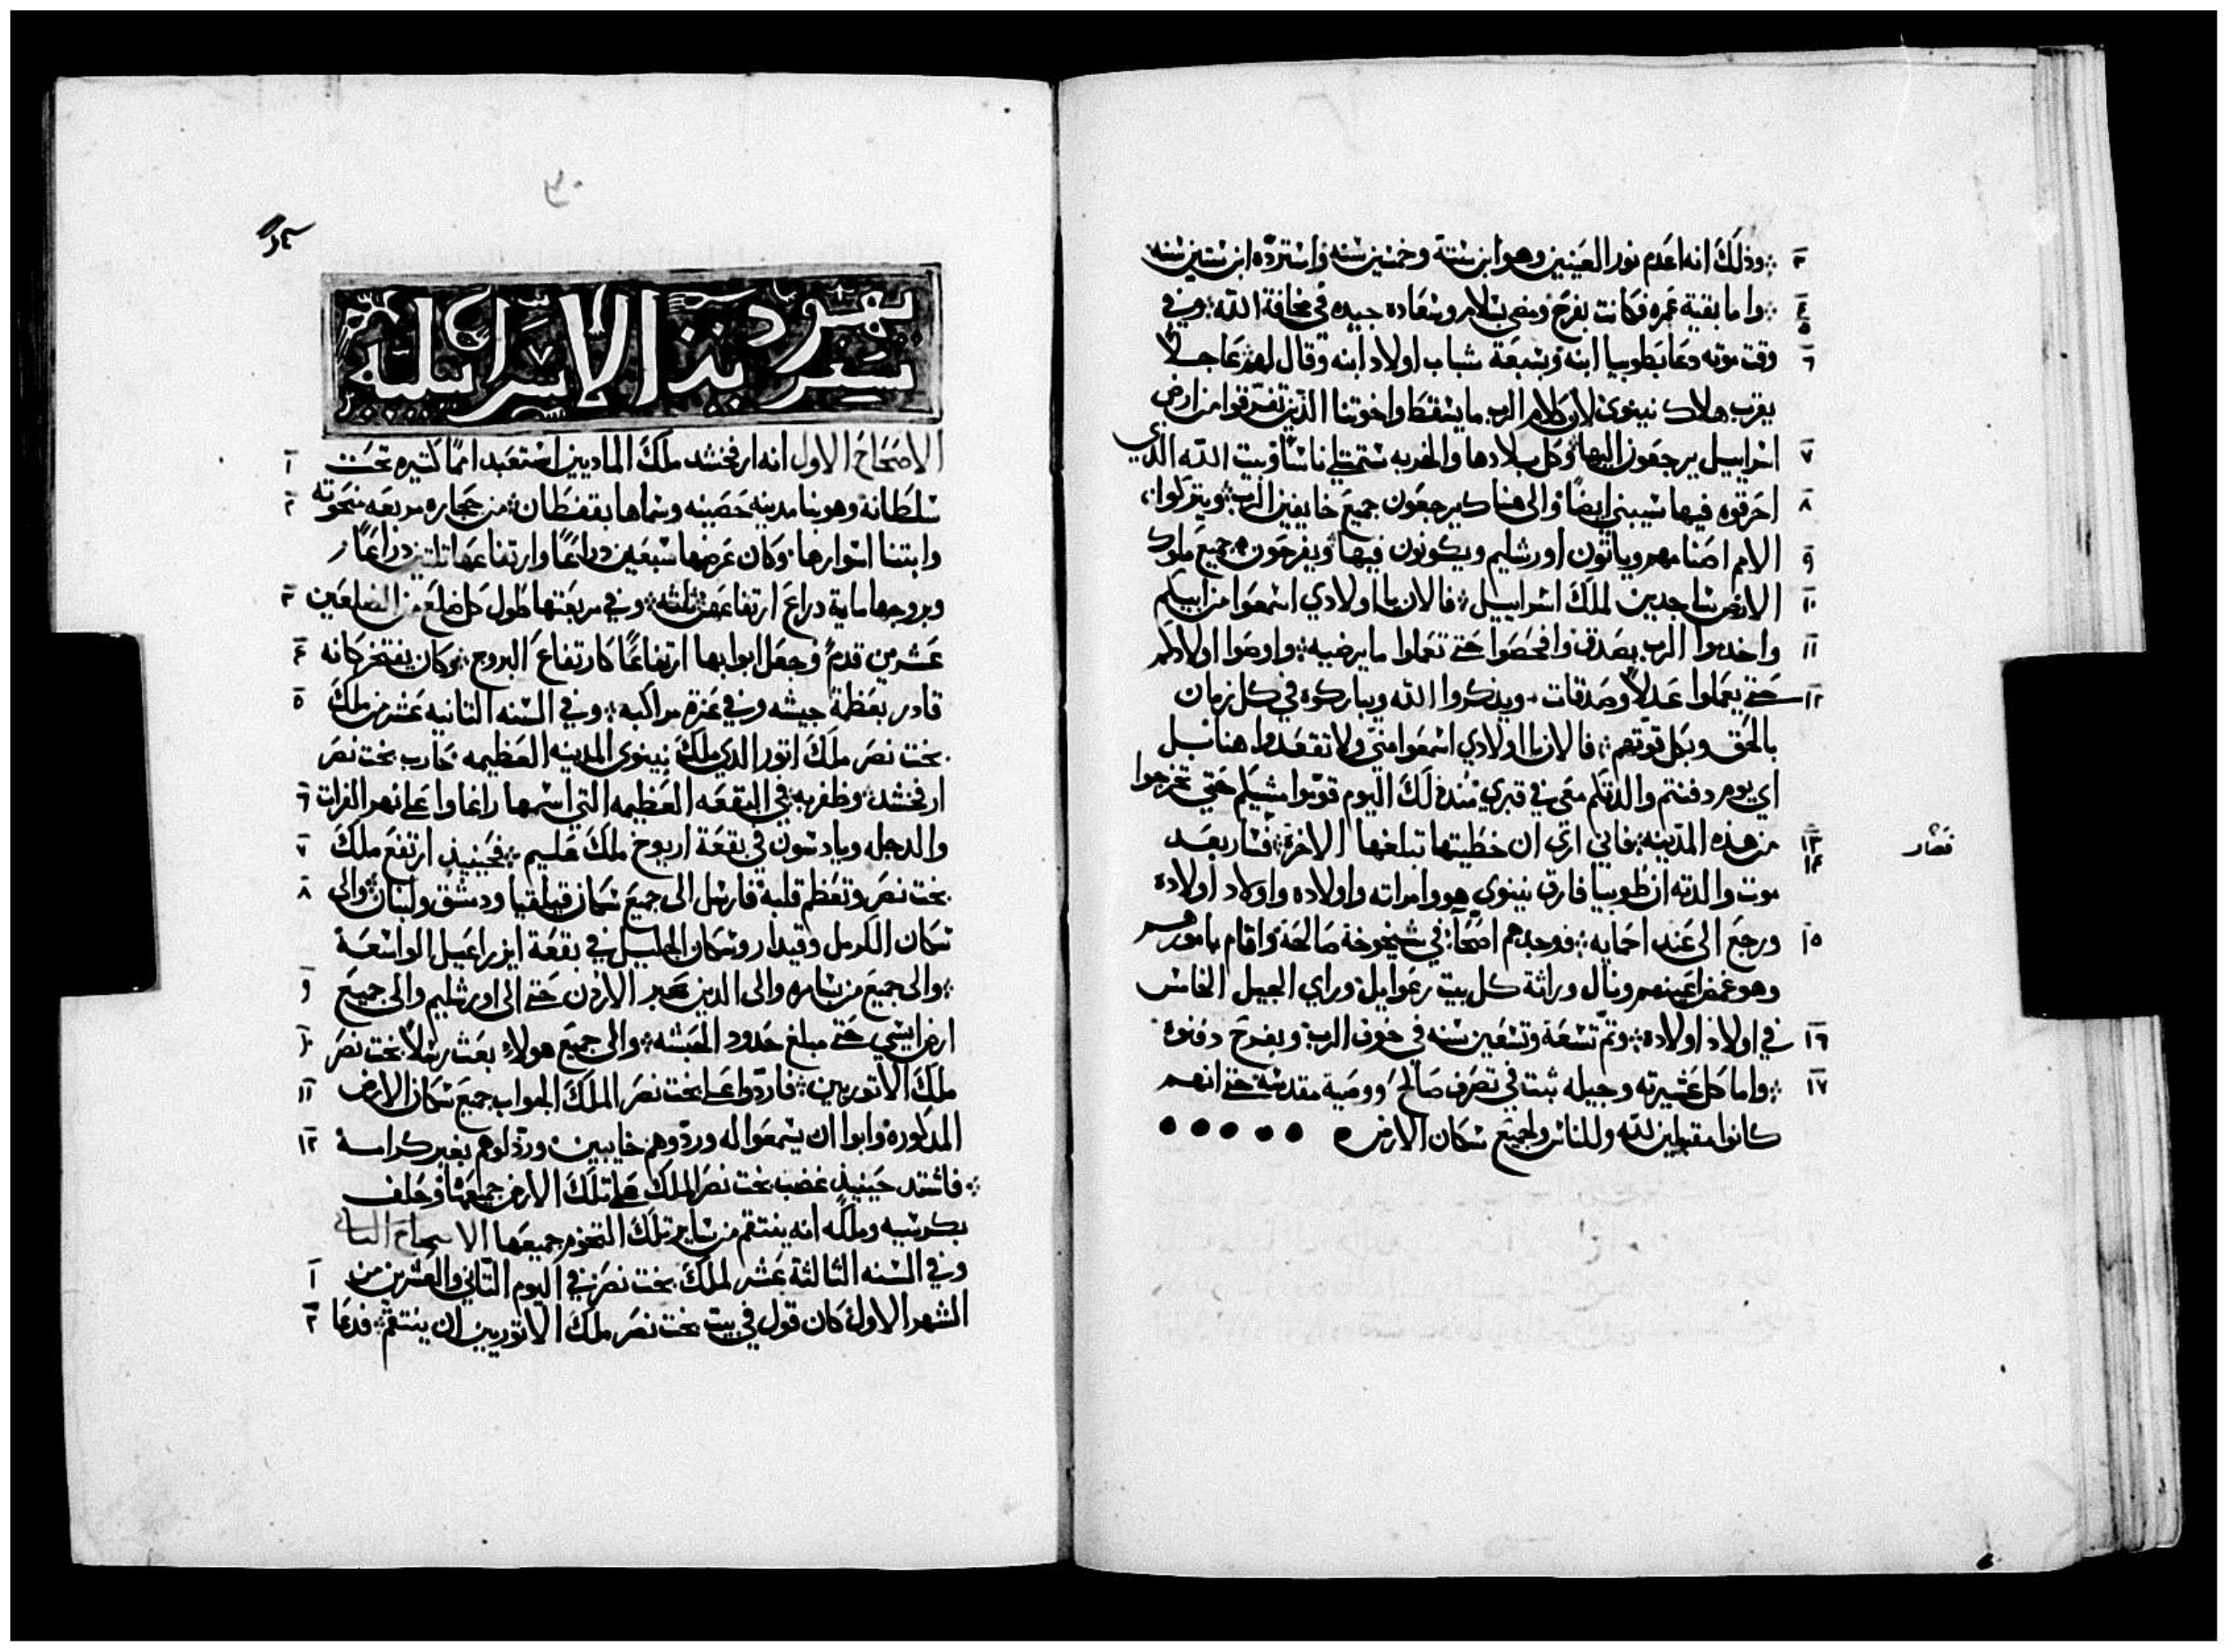 ٣ وذلك انه اعدم نور العينين وهو ابن ستة وخمسين سنه واسترده ابن ستين سنه
٤ واما بقية عمره فكانت بفرح ومضى بسلام وسعاده جيده في مخافة الله وفي ٥
٦ وقت موته دعا بطوبيا ابنه وسبعة شباب اولاد ابنه وقال لهم عاجلاً
يقرب هلاك نينوى لان كلام الرب ما يسقط واخوتنا الذين تفرقوا من ارض
٧ اسراييل يرجعون اليها وكل بلادها والخربه ستمتلي ناسًا وبيت الله الذي
٨ احرقوه فيها سيبني ايضًا والى هناك يرجعون جميع خايفين الرب ويتركوا
٩ الامم اصنامهم وياتون اورشليم ويكونون فيها ويفرحون جميع ملوك
١٠ الارض ساجدين لملك اسراييل فالان يا اولادي اسمعوا من ابيكم
١١ واخدموا الرب بصدق وافحصوا حتى تعملوا ما يرضيه واوصوا اولادكم
١٢ حتى يعملوا عدلاً وصدقات ويذكروا الله ويباركوه في كل زمان
بالحق وبكل قوتهم فالان يا اولادي اسمعوا مني ولا تقعدوا هنا بل
اي يوم دفنتم والدتكم معي في قبري منذ لك اليوم قوموا مشيكم حتى تخرجوا
١٣ من هذه المدينه فاني ارى ان خطيتها تبلغها الاخرة فصار بعد
١٤ موت والدته ان طوبيا فارق نينوى هو وامراته واولاده واولاد اولاده
١٥ ورجع الى عند احمايه فوجدهم اصحا في شيخوخة صالحة واقام بامورهم
وهو غمض اعينهم ونال وراثة كل بيت رعوايل وراي الجيل الخامس
١٦ في اولاد اولاده وتم تسعة وتسعين سنه في خوف الرب وبفرح دفنوه
١٧ واما كل عشيرته وجيله ثبت في تصرف صالح ووصية مقدسة حتى انهم
كانوا مقبولين لله وللناس ولجميع سكان الارض
فصار
سفر يهوديت الاسراييلية
الاصحاح الاول انه ارفخشد ملك الماديين استعبد اممًا كثيره تحت ١
سلطانه وهو بنا مدينه حصينه وسماها بقفطان من حجاره مربعه منحوته ٢
وابتنا اسوارها وكان عرضها سبعين دراعًا وارتفاعها ثلتين دراعًا
وبروجها ماية دراع ارتفاعهن ثلثه وفي مربعتها طول كل ضلع من الضلعين ٣
عشرين قدمً وجعل ابوابها ارتفاعًا كارتفاع البروج وكان يفتخر كانه ٤
قادر بعظمة جيشه وفي عزة مراكبه وفي السنه الثانيه عشر من ملك ٥
بخت نصر ملك اتور الذي ملك نينوى المدينه العظيمه حارب بخت نصر
ارفخشد وظفر به في البقعه العظيمه التي اسمها راغاوا على نهر الفرات ٦
والدجله ويادسون في بقعة اريوخ ملك عليم فحينيذ ارتفع ملك ٧
بخت نصر وتعظم قلبه فارسل الى جميع سكان قيلقيا ودمشق ولبنان والى ٨
سكان الكرمل وقيدار وسكان الجليل في بقعة ايزراعيل الواسعة
والى جميع من سامره والى الدين عبر الاردن حتى الى اورشليم والى جميع ٩
ارض ايسي حتى مبلغ حدود الحبشه والى جميع هولاء بعث رسلاً بخت نصر ١٠
ملك الاتوريين فاردوا على بخت نصر الملك الجواب جميع سكان الارض ١١
المذكوره وابوا ان يسمعوا له وردوهم خايبين ورذلوهم بغير كرامة ١٢
فاشتد حينيذ غضب بخت نصر الملك على تلك الارض جميعها وحلف
بكرسيه وملكه انه ينتقم من ساير تلك التخوم جميعها الاصحاح الثاني
وفي السنه الثالثة عشر لملك بخت نصر في اليوم الثاني والعشرين من ١
الشهر الاول كان قول في بيت بخت نصر ملك الاتوريين ان ينتقم فدعا ٢